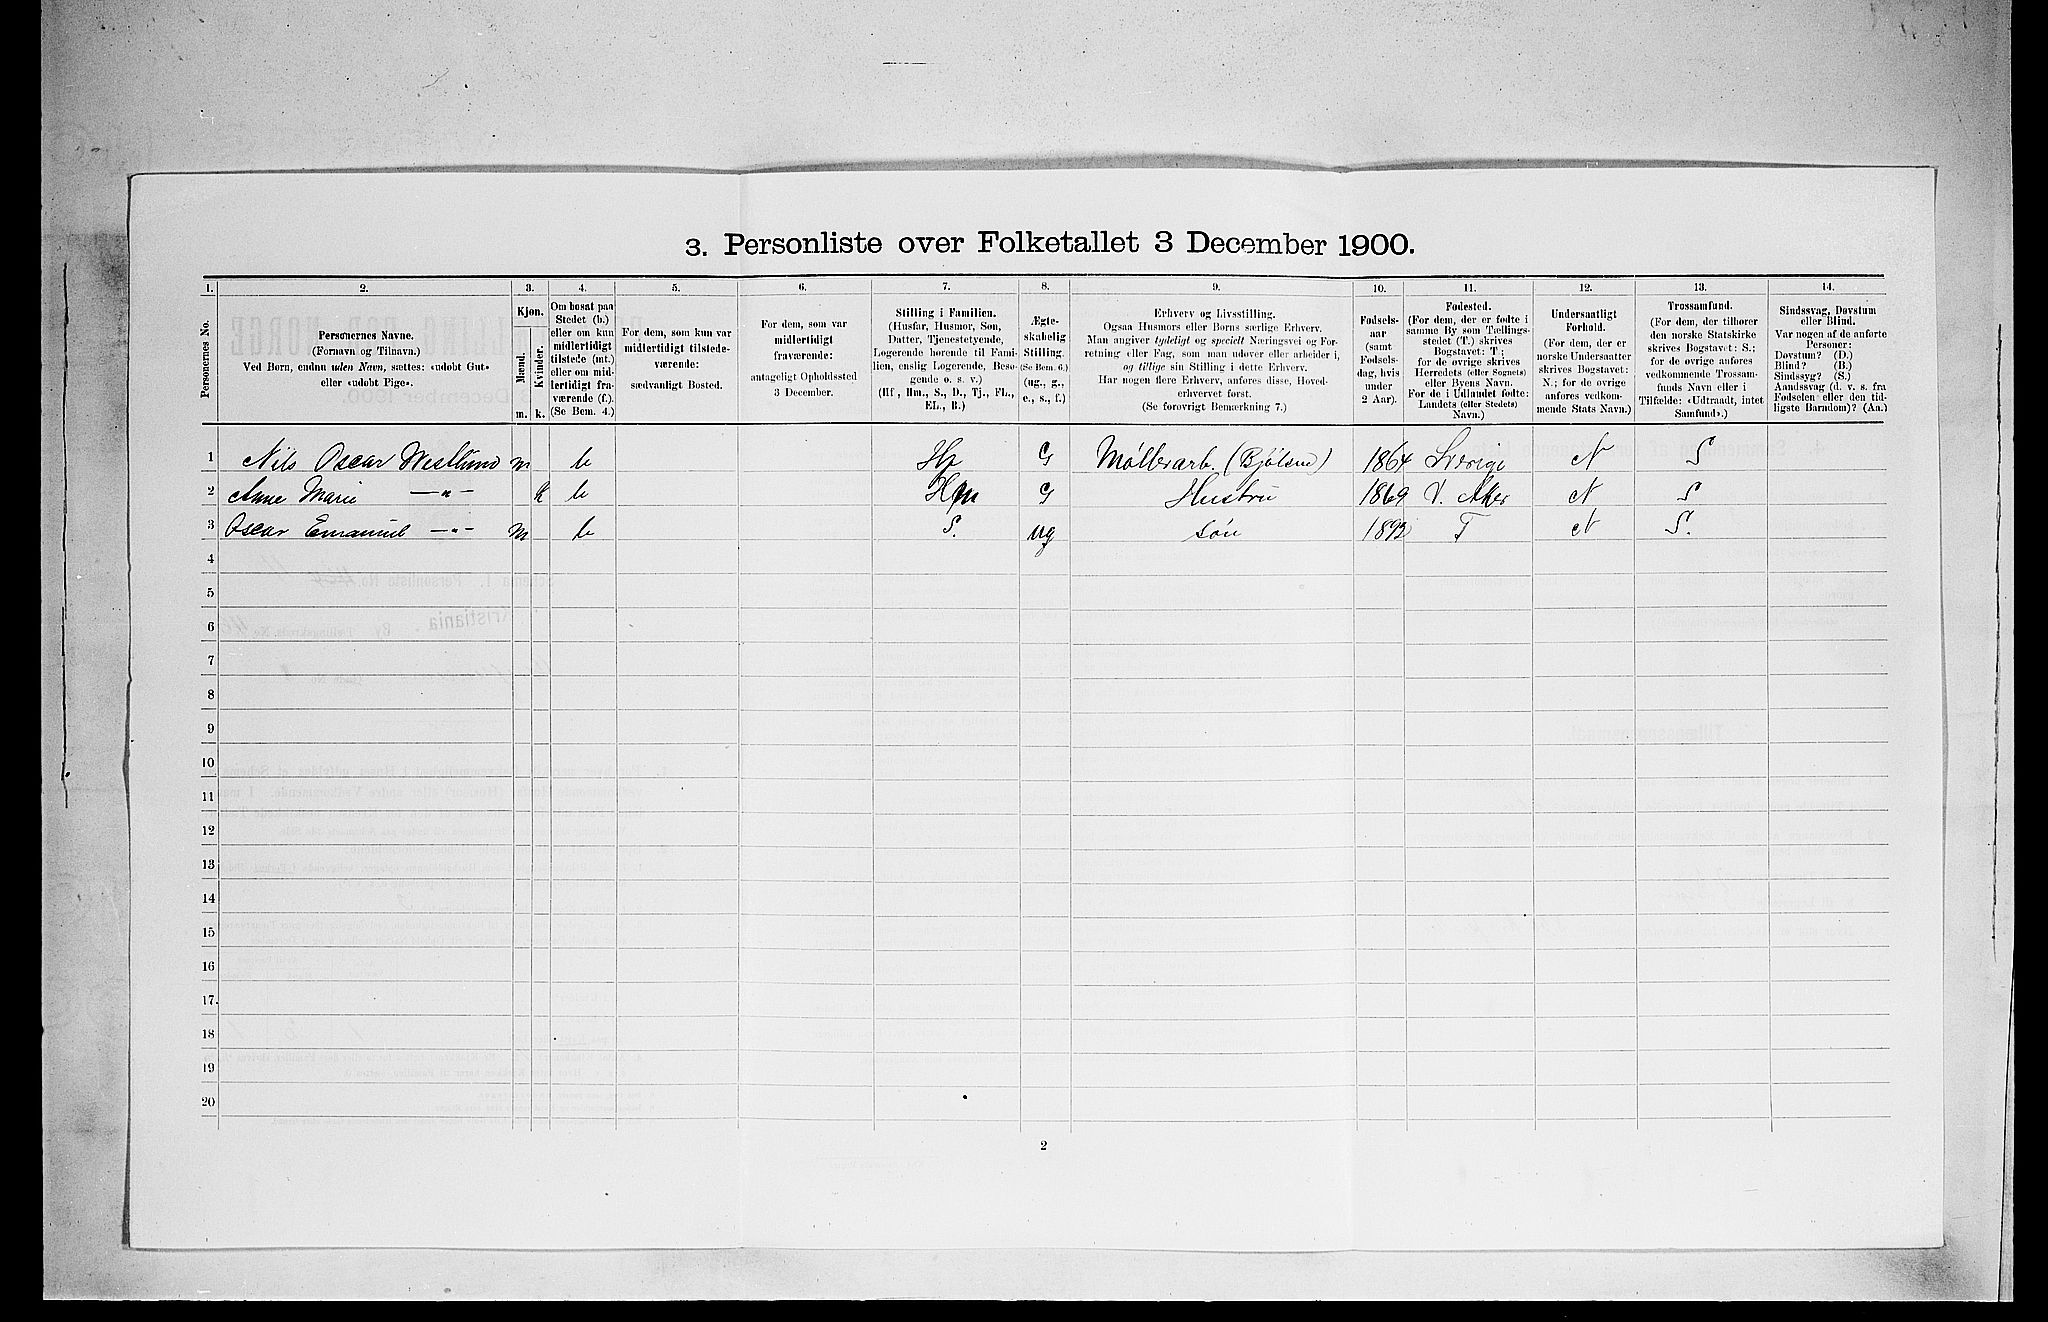 3. Personliste over Folketallet 3 December 1900.
1. 2. 3. 4. 5. 6. 7. 8. 9. 10. 11. 12. 13. 14.
Personernes No.
Personernes Navne.
(Fornavn og Tilnavn.)
Ved Børn, endnu uden Navn, sættes: «udøbt Gut»
eller «udøbt Pige».
Kjøn.
Mænd.
Kvinder.
m. k.
Om bosat paa
Stedet (b.)
eller om kun
midlertidigt
tilstede (mt.)
eller om mid-
lertidigt fra-
værende (f.).
(Se Bem. 4.)
For dem, som kun var
midlertidigt tilstede-
værende:
sædvanligt Bosted.
For dem, som var
midlertidigt
fraværende:
antageligt Opholdssted
3 December.
Stilling i Familien.
(Husfar, Husmor, Søn,
Datter, Tjenestetyende,
Logerende hørende til Fami-
lien, enslig Logerende, Besø-
gende o. s. v.)
(Hf, Hm., S., D., Tj., FL.,
EL., B.)
Ægte-
skabelig
Stilling.
(Se Bem. 6.)
(ug., g.,
e., s., f.)
Erhverv og Livsstilling.
Ogsaa Husmors eller Børns særlige Erhverv.
Man angiver tydeligt og specielt Næringsvei og For-
retning eller Fag, som man udøver eller arbeider i,
og tillige sin Stilling i dette Erhverv.
Har nogen flere Erhverv, anføres disse, Hoved-
erhvervet først.
(Se forøvrigt Bemærkning 7.)
Fødsels-
aar
(samt
Fødsels-
dag, hvis
under
2 Aar).
Fødested.
(For dem, der er fødte i
samme By som Tællings-
stedet (T.) skrives
Bogstavet: T;
for de øvrige skrives
Herredets (eller Sognets)
eller Byens Navn.
For de i Udlandet fødte:
Landets (eller Stedets)
Navn.)
Undersaatligt
Forhold.
(For dem, der er
norske Undersaatter
skrives Bogstavet:
N.; for de øvrige
anføres vedkom-
mende Stats Navn.)
Trossamfund.
(For dem, der tilhører
den norske Statskirke
skrives Bogstavet: S.;
for de øvrige anføres
vedkommende Trossam-
funds Navn eller i
Tilfælde: «Udtraadt, intet
Samfund».)
Sindssvag, Døvstum
eller Blind.
Var nogen af de anførte
Personer:
Døvstum? (D.)
Blind? (B.)
Sindssyg? (S.)
Aandssvag (d. v. s. fra
Fødselen eller den tid-
ligste Barndom)? (Aa.)
1 Nils Oscar Westlund m b Hf G Møllerarb. (Bjølsen) 1864 Sverige N S
2 Anne Marie —"— k b Hm G Hustru 1869 V. Aker N S
3 Oscar Emanuel —"— m b S. ug søn 1892 T N S.
4
5
6
7
8
9
10
11
12
13
14
15
16
17.
18
19
20
2